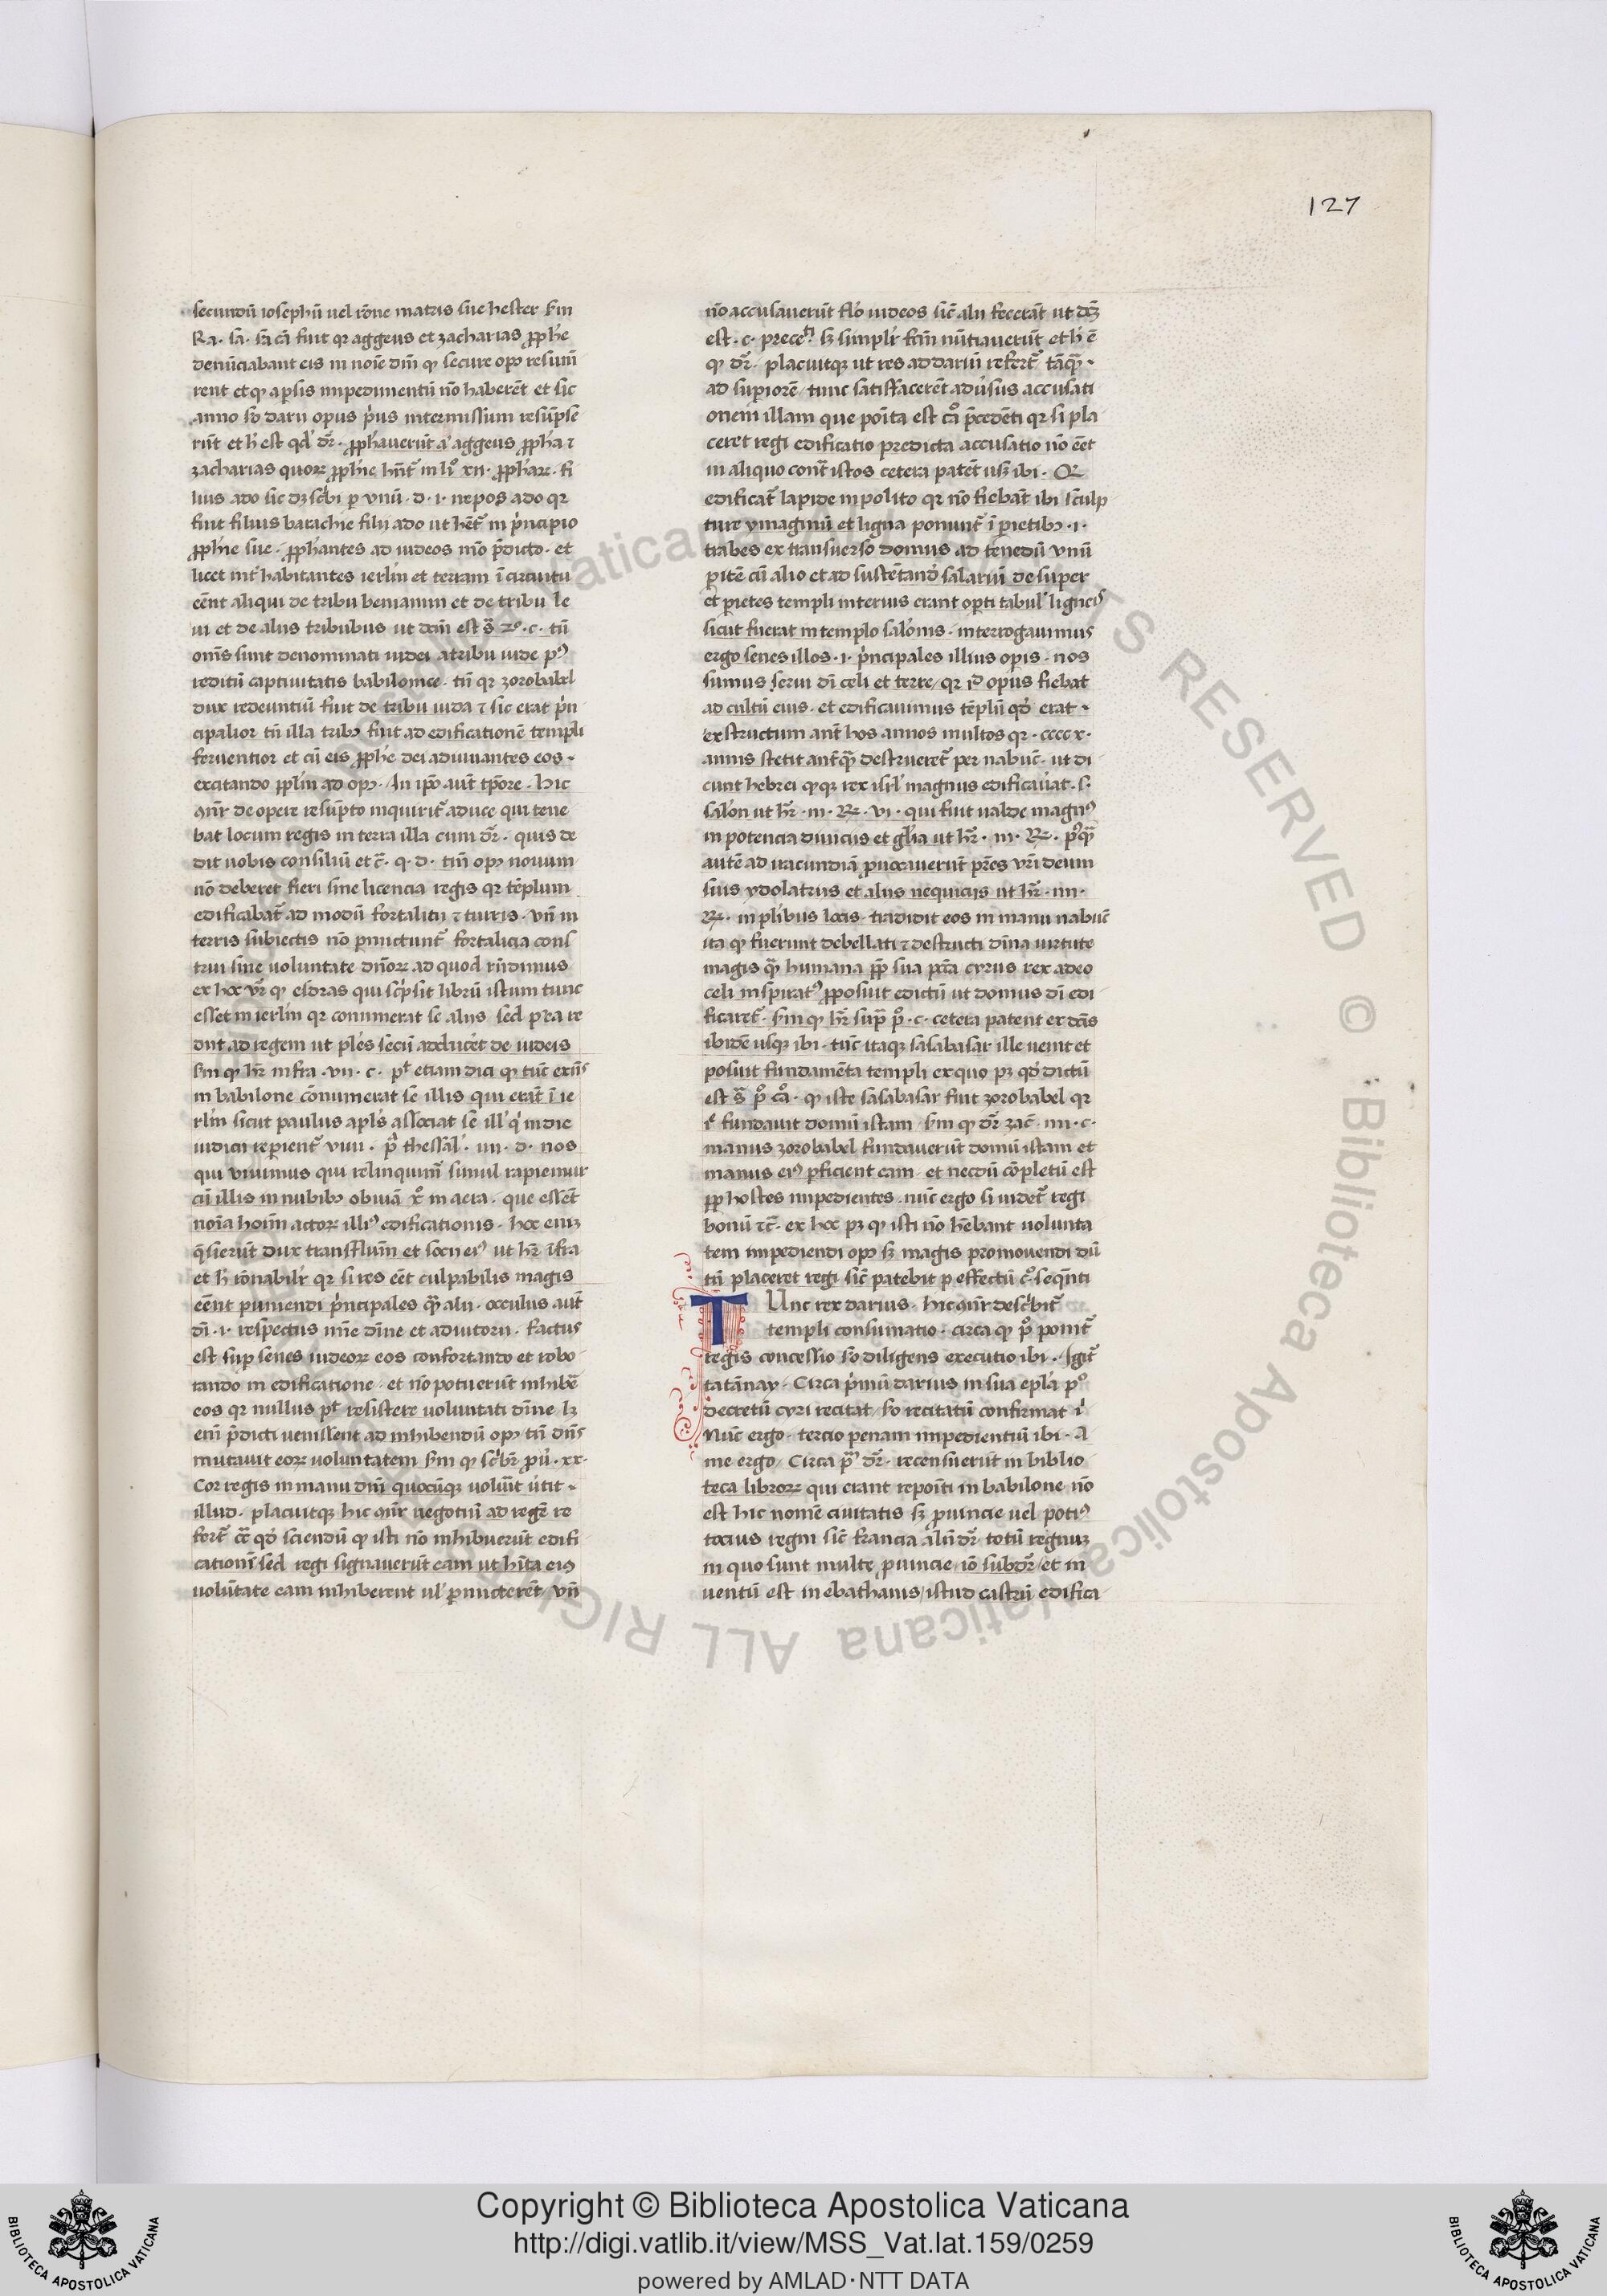 127
secundū iosephū uel rōne matris sue hester ẜm
Ra. sa. sc̄da cā fuit qr aggeus et zacharias ꝓphe
denūciabant eis in noīe dn̄i ꝙ secure opꝰ resumē
rent et ꝙ a persis impedimentū nō haberēt et sic
anno so darii opus prius intermissum resūpse
rūt et h̄ est qd' dr̄. ꝓphauerūt aū aggeus ꝓpha ⁊
zacharias quoꝝ ꝓphie hn̄t̄ in liº xii. ꝓphaꝝ. fi
lius ado sic dꝫ scbi ꝑ vnū .d. i. nepos ado qr
fuit filius barachie filii ado ut het̄ in pͥncipio
ꝓphie sue. ꝓphantes ad iudeos mō p̄dicto. et
licet int̄ habitantes ierlm̄ et terram ī circuitu
eēnt aliqui de tribu beniamin et de tribu le
ui et de aliis tribubus ut dcm̄ est s̄ 2º .c. tn̄
om̄s sunt denominati iudei a tribu iude pꝰ
reditū captiuitatis babilonice. tū qr zorobabel
dux redeuntiū fuit de tribu iuda ⁊ sic erat pͥn
cipalior tū illa tribꝰ fuit ad edificationē templi
feruentior et cū eis ꝓphe dei adiuuantes eos
excitando pplm̄ ad opꝰ. In ipo aut̄ tp̄ore. hic
qn̄r de opere resūpto inquirit̄ a duce qui tene
bat locum regis in terra illa cum dr̄. quis de
dit uobis consiliū et c̄. q. d. tm̄ opꝰ nouum
nō deberet fieri sine licencia regis qr tēplum
edificabat̄ ad modū fortalitii ⁊ turris. vn̄ in
terris subiectis nō ꝑmictunt̄ fortalicia cons
trui sine uoluntate dn̄oꝝ ad quod rn̄dimus
ex hoc vr̄ ꝙ esdras qui scͥpsit librū istum tunc
esset in ierlm̄ qr connumerat se aliis sed p̄ea re
diit ad regem ut ples secū adduceret de iudeis
ẜm ꝙ hr̄ infra .vii. c. pt̄ etiam dici ꝙ tūc exn̄s
in babilone cōnumerat se illis qui erāt ī ie
rlm̄ sicut paulus apls̄ assōciat se ill' qi in die
iudicii repient̄ viui. pͣ thessal'. iiii. d. nos
qui viuimus qui relinquimur simul rapiemur
cū illis in nubibꝰ obuiā xº in aera. que essēt
noīa hoīm actoꝝ illiꝰ edificationis. hoc enīꝫ
q̄sierūt dux transfluuiū et socii eiꝰ ut hr̄ ifra
et h̄ rōnabilr̄ qr si res eēt culpabilis magis
eēnt puniendi pͥncipales qͣꝫ alii. occulus aut̄
di .i. respectus mīe diuine et adiutorii. factus
est suꝑ senes iudeoꝝ eos confortando et robo
rando in edificatione. et nō potuerūt inhibē
eos qr nullus pt̄ resistere uoluntati diuine lꝫ
enī p̄dicti uenissent ad inhibendū opꝰ tn̄ dn̄s
mutauit eoꝝ uoluntatem ẜm ꝙ scͥbr̄ ꝓū. xx.
Cor regis in manu dn̄i quocūqꝫ uolūit ūtit
illud. placuitqꝫ hic qn̄r negotiū ad regē re
fert̄ cͣ qd' sciendū ꝙ isti nō inhibuerūt edifi
cationē sed regi signauerūt eam ut hīta eiꝰ
uolūtate eam inhiberent ul' ꝑmicterēt vn̄
nō accusauerūt falso iudeos sic̄ alii fecerāt ut dc̄m
est .c. precedēti sꝫ simplr̄ fcm̄ nūtiauerūt et h̄ ē
ꝙ dr̄. placuitqꝫ ut res ad dariū refert̄ tāqͣꝫ
ad supiorē tunc satisfacerēt aduersus accusati
onem illam que poīta est cº p̄cedēti qr si pla
ceret regi edificatio predicta accusatio nō eēt
in aliquo cont̄ istos cetera patēt usqꝫ ibi. Qr
edificat̄ lapide inpolito qr nō fiebāt ibi sculp
ture ymaginū et ligna ponunt̄ ī pietibꝰ .i.
trabes ex transuerso domus ad tenedū vnū
pitē cū alio et ad sustētandū salariū desuper
et pietes templi interius erant opti tabul' ligneis
sicut fuerat in templo salōnis. interrogauimus
ergo senes illos .i. pͥncipales illius opis. nos
sumus serui di celi et terre qr id opus fiebat
ad cultū eius. et edificauimus tēplū qd' erat
exstructum an̄t hos annos multos qr .cccc x.
annis stetit anteqͣꝫ destrueret̄ per nabuc. ut di
cunt hebrei qͦꝫ rex isrl' magnus edificauat .s.
salon ut hr̄ .iii. Rꝝ. vi. qui fuit ualde magnꝰ
in potencia diuiciis et gl̄ia ut hr̄ .iii. Rꝝ. pꝰqͣꝫ
autē ad iracundiā ꝓuocauerūt pr̄es vr̄i deum
suis ydolatriis et aliis nequiciis ut hr̄ .iiii.
Rꝝ. in pluribus locis. tradidit eos in manu nabuc̄
ita ꝙ fuerunt debellati ⁊ destructi diuīna uirtute
magis qͣꝫ humana ꝓp̄ sua pc̄ca cyrus rex a deo
celi inspiratꝰ ꝓposuit edictū ut domus di edi
ficaret̄. ẜm ꝙ hr̄ supͣ pº .c. cetera patent ex dc̄is
ibidē usqꝫ ibi. tūc itaqꝫ sasabasar ille uenit et
posuit fundamēta templi ex quo pꝫ qd' dictū
est s̄ pº cº. ꝙ iste sasabasar fuit zorobabel qr
ip̄e fundauit domū istam ẜm ꝙ dr̄ zac̄. iiii. c.
manus zorobabel fundauerūt domū istam et
manus eiꝰ ꝑficient eam. et necdū cōpletū est
ꝓp hostes impedientes. nūc ergo si uidet̄ regi
bonū ⁊c̄. ex hoc pꝫ ꝙ isti nō hēbant uolunta
tem impediendi opꝰ sꝫ magis promouendi dū
tn̄ placeret regi sic̄ patebit ꝑ effectū cº seqn̄ti
TUnc rex darius. hic qn̄r descͥbit̄
templi consumatio. circa qͦ pº ponit̄
regis concessio so diligens executio ibi. Igit̄
tatānay. Circa pͥmū darius in sua epl̄a pº
decretū cyri recitat so recitatū confirmat i
Nūc ergo. tercio penam impedientiū ibi. A
me ergo. Circa pͫ dr̄. recensuerūt in biblio
teca libroꝝ qui erant repoīti in babilone nō
est hic nomē ciuitatis sꝫ ꝓuincie uel potiꝰ
tocius regni sic̄ francia alīn dr̄ totū regnuꝫ
in quo sunt multe ꝓuincie iō subdr̄ et in
uentū est in ebathanis istud castrū edifica
Copyright © Biblioteca Apostolica Vaticana
http://digi.vatlib.it/view/MSS_Vat.lat.159/0259
powered by AMLAD·NTT DATA